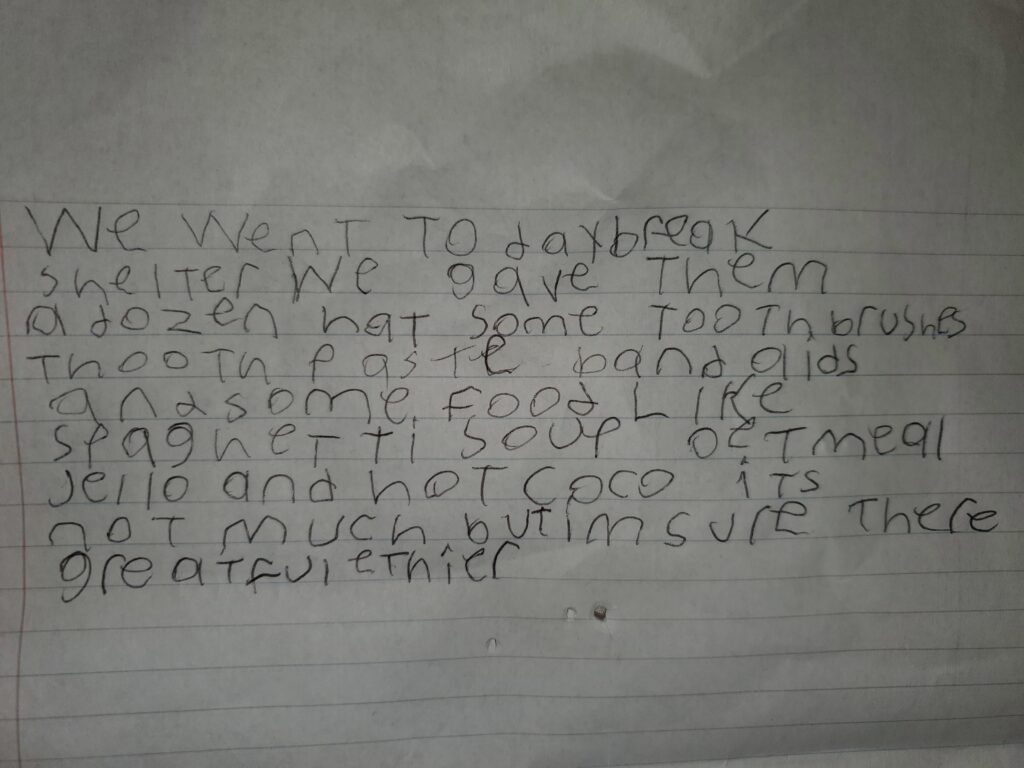 We went to daybreak
shelter We gave them
a dozen hat some toothbrushes
thooth paste band aids
and some food Like
spaghetti soup oetmeal
jello and hot coco its
not much but im sure there
greatful ethier